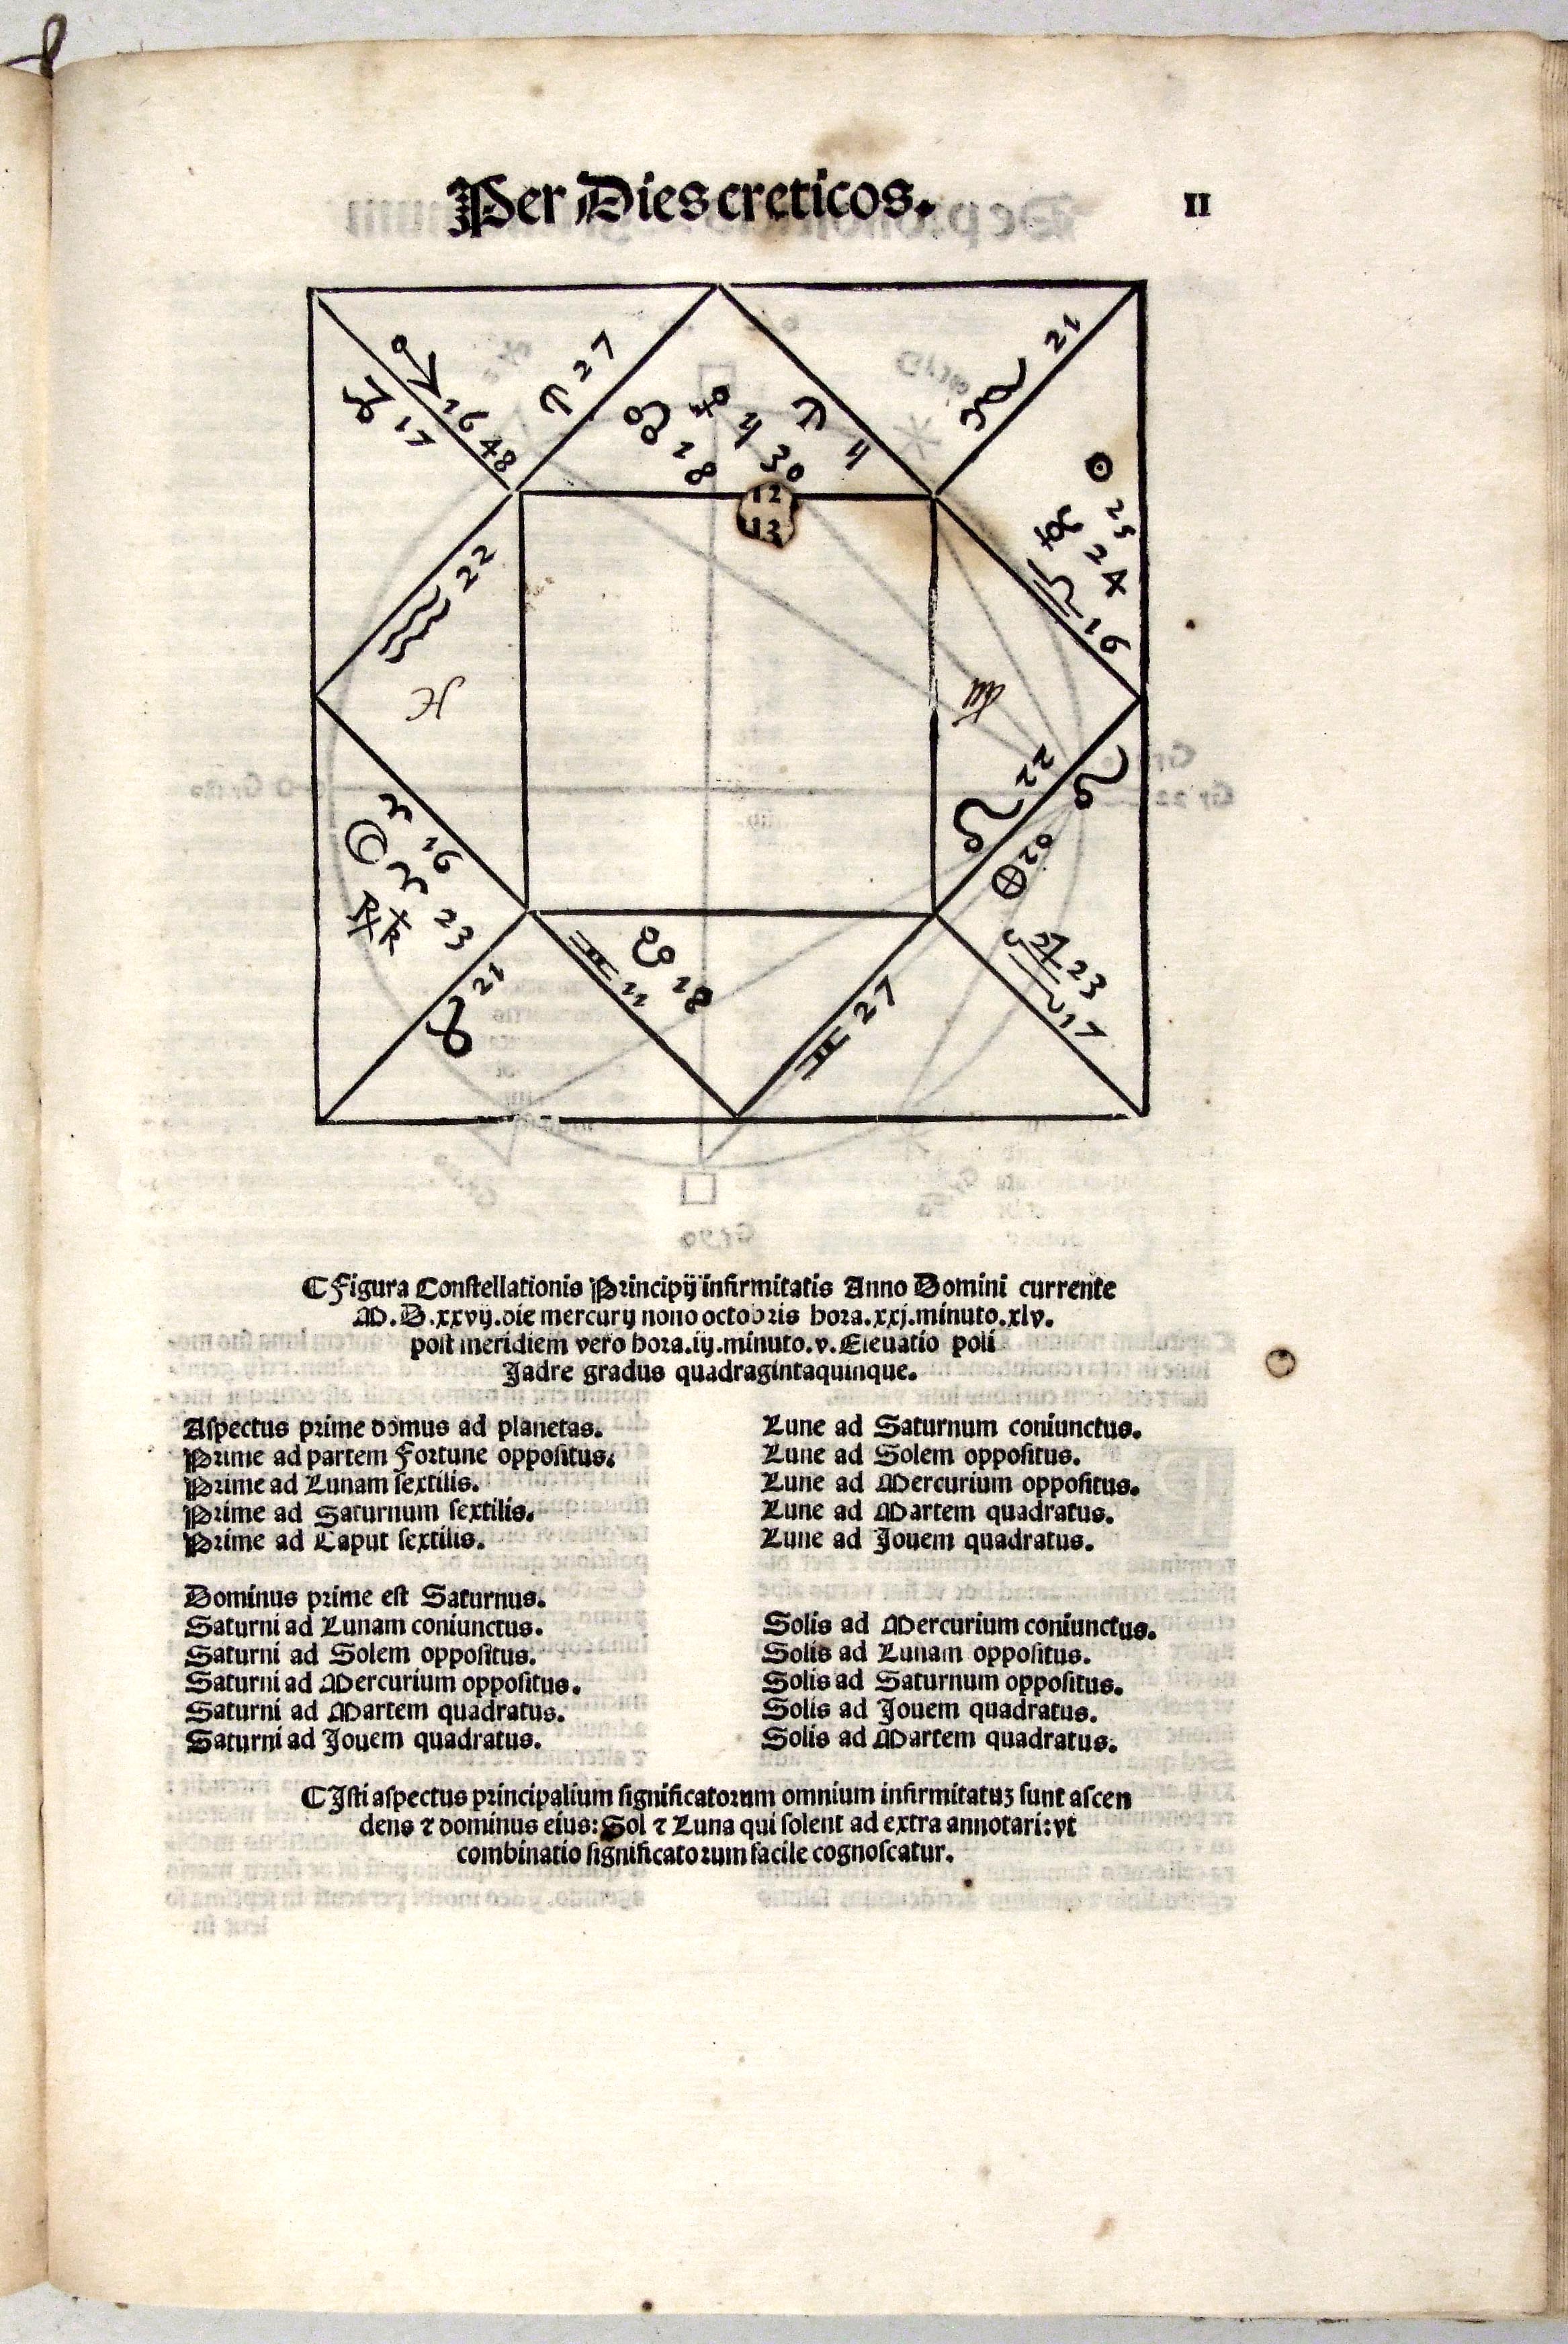 Per Dies creticos.
II
16 48
17
27
18
4 30
4
21
12
13
25
24
16
22
22
20
16
23
21
11
18
27
23
17
ℂ Figura Constellationis Principij infirmitatis Anno Domini currente
M.D.xxvij.die mercurij nono octobris hora.xxj.minuto.xlv.
post meridiem vero hora.iij.minuto.v.Eleuatio poli
Jadre gradus quadragintaquinque.
Aſpectus prime domus ad planetas.
Prime ad partem Fortune oppoſitus.
Prime ad Lunam ſextilis.
Prime ad Saturnum ſextilis.
Prime ad Caput ſextilis.
Dominus prime eſt Saturnus.
Saturni ad Lunam coniunctus.
Saturni ad Solem oppoſitus.
Saturni ad Mercurium oppoſitus.
Saturni ad Martem quadratus.
Saturni ad Jouem quadratus.
Lune ad Saturnum coniunctus.
Lune ad Solem oppoſitus.
Lune ad Mercurium oppoſitus.
Lune ad Martem quadratus.
Lune ad Jouem quadratus.
Solis ad Mercurium coniunctus.
Solis ad Lunam oppoſitus.
Solis ad Saturnum oppoſitus.
Solis ad Jouem quadratus.
Solis ad Martem quadratus.
ℂ Iſti aſpectus principalium ſignificatorum omnium infirmitatuꝫ ſunt aſcen
dens ⁊ dominus eius: Sol ⁊ Luna qui ſolent ad extra annotari: vt
combinatio ſignificatorum facile cognoſcatur.